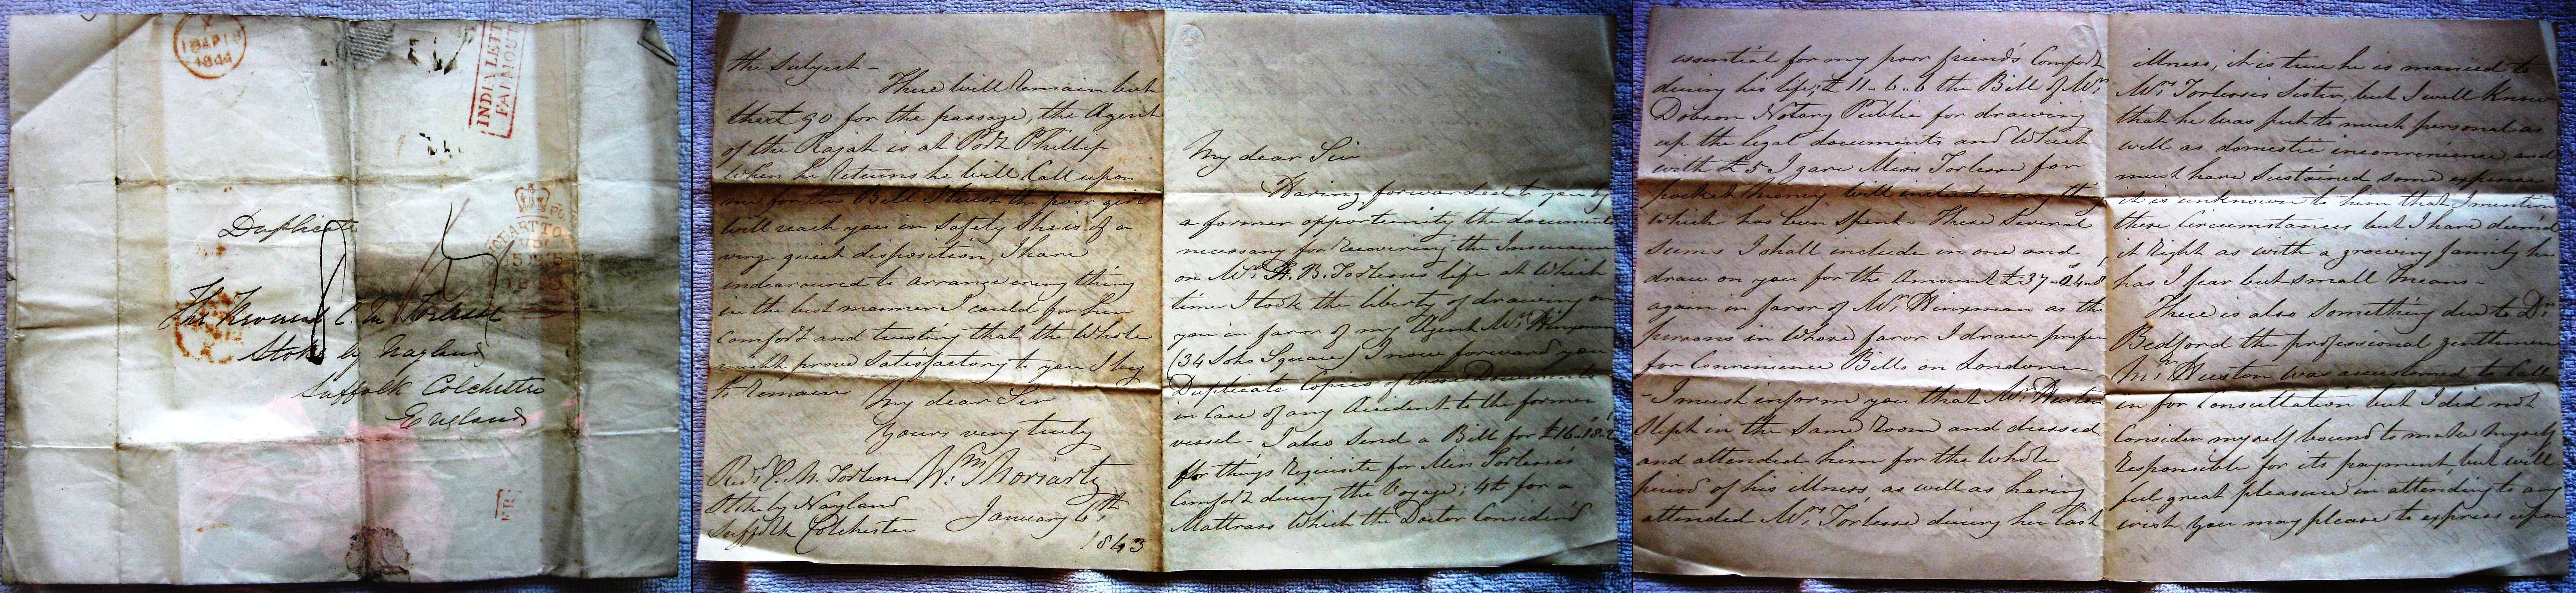 18 AP 18
1844
INDIA LETT
FALMOUT
HOBART TO
Duplicate
The Reverend C. M. Torlesse
Stoke by Nayland
Suffolk Colchester
England
the Subject -
There will remain but
that 90 for the passage, the Agent
of the Rajah is at Port Phillip
When he returns he will Call upon
me for the Bill I trust the poor girl
will reach you in Safety She is of a
very quiet disposition, I have
endeavoured to arrange every thing
in the best manner I could for her
Comfort and trusting that the Whole
might prove Satisfactory to you I beg
to Remain My dear Sir
Yours very truly
Wm. Moriarty
Revd. C. M. Torlesse
Stoke by Nayland
Suffolk Colchester
January 6th
1843
My dear Sir
Having forwarded to you by
a former opportunity the documents
necessary for recovering the Insurance
on Mr. H. B. Torlesse's life at which
time I took the liberty of drawing on
you in favor of my Agent Mr. Hinxman
(34 Soho Square) I now forward you
Duplicate Copies of those Documents
in Case of any Accident to the former
vessel - I also Send a Bill for £16-18-2
for things requisite for Miss Torlesse's
Comfort during the Voyage; 4£ for a
Mattrass which the Doctor Consider'd
essential for my poor friend's Comfort
during his life; £11-6-6 the Bill of Mr.
Dobson Notary Public for drawing
up the legal documents and Which
with £5 I gave Miss Torlesse for
pocket money will include every thing
which has been Spent - These Several
Sums I shall include in one and
draw on you for the Amount £37-04-8
again in favor of Mr. Hinxman as the
persons in whose favor I draw prefer
for Convenience Bills on London
- I must inform you that Mr. Huston
Slept in the Same Room and dressed
and attended him for the Whole
period of his illness, as well as having
attended Mrs. Torlesse during her last
illness, it is true he is married to
Mrs. Torlesse's Sister, but I well know
that he was put to much personal as
well as domestic inconvenience, and
must have Sustained some expense
it is unknown to him that I mention
these Circumstances but I have deem'd
it Right as with a growing family he
has I fear but small Means -
There is also Something due to Dr.
Bedford the professional gentleman
Mr. Huston was accustomed to Call
in for Consultation but I did not
Consider myself bound to make myself
Responsible for its payment but will
feel great pleasure in attending to any
wish you may please to express upon